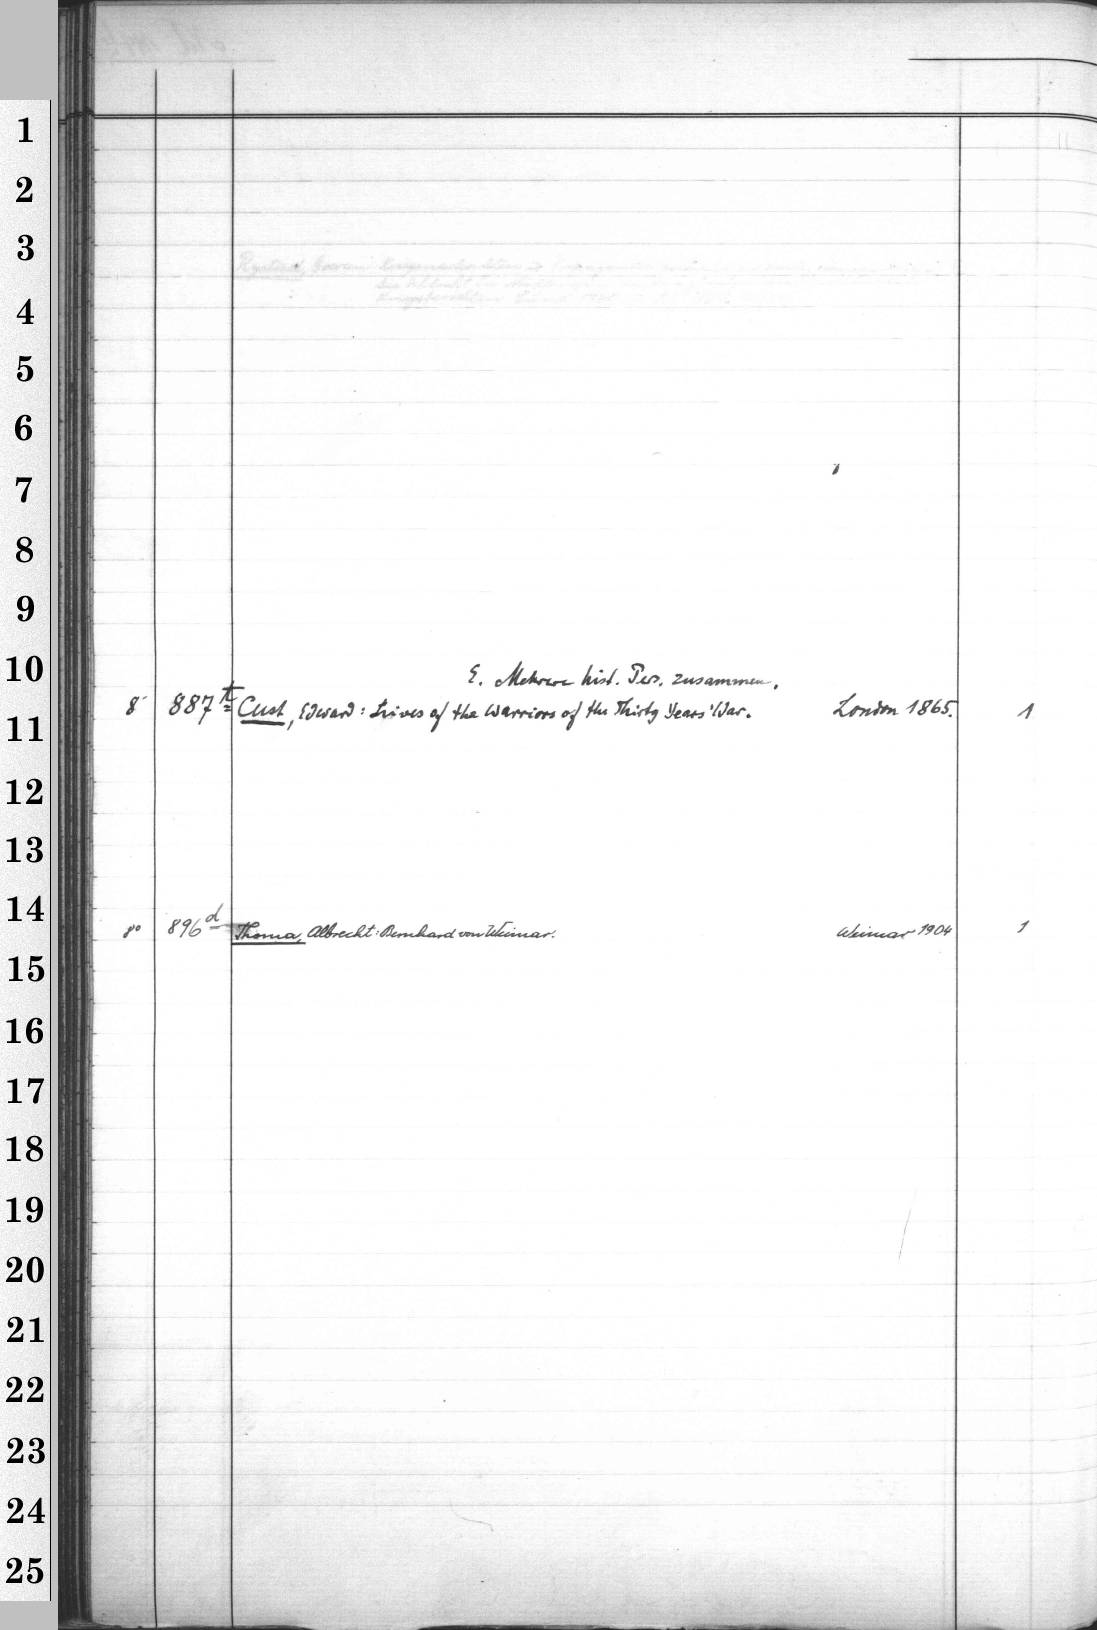 1
2
3
4
5
6
7
8
9
10
11
12
13
14
15
16
17
18
19
20
21
22
23
24
25
E. Mehrere hist. Pers. zusammen.
8° 887 t Cust, Edward: Lives of the Warriors of the Thirty Years' War. London 1865. 1
8° 896 d Thoma, Albrecht: Bernhard von Weimar. Weimar 1904 1